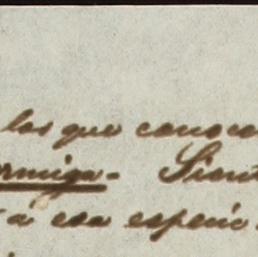 los que conoce
ormiga. Sient
a esa especie